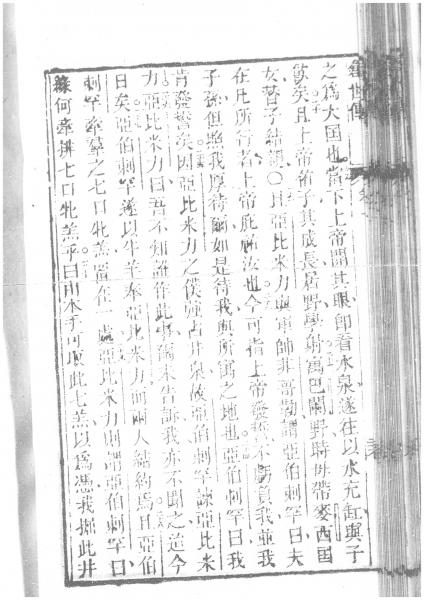 之爲大国也當下上帝開其眼卽看水泉遂往以水充缸與子
飮矣且上帝祐子其成長居野學射寓巴闌野時母帶麥西国
女替子結親〇且亞比米力與軍師非哥勒謂亞伯剌罕曰夫
在比所行者上帝庇祐汝也今可指上帝發誓不虧負我並我
子孫但照我厚待爾如是待我與所寓之地也亞伯剌罕曰我
肯發誓矣因亞比米力之僕強占井泉故亞伯剌罕諫亞比米
力亞比米力曰吾不知誰作此事爾未告訴我亦不聞之迨今
日矣亞伯剌罕遂以牛羊奉亞比米力而兩人結約焉且亞伯
剌罕牽羣之七口牝羔置在一處亞比米力則謂亞伯剌罕曰
緣何牽排七口牝羔乎曰由本手可取此七羔以爲憑我掘此井